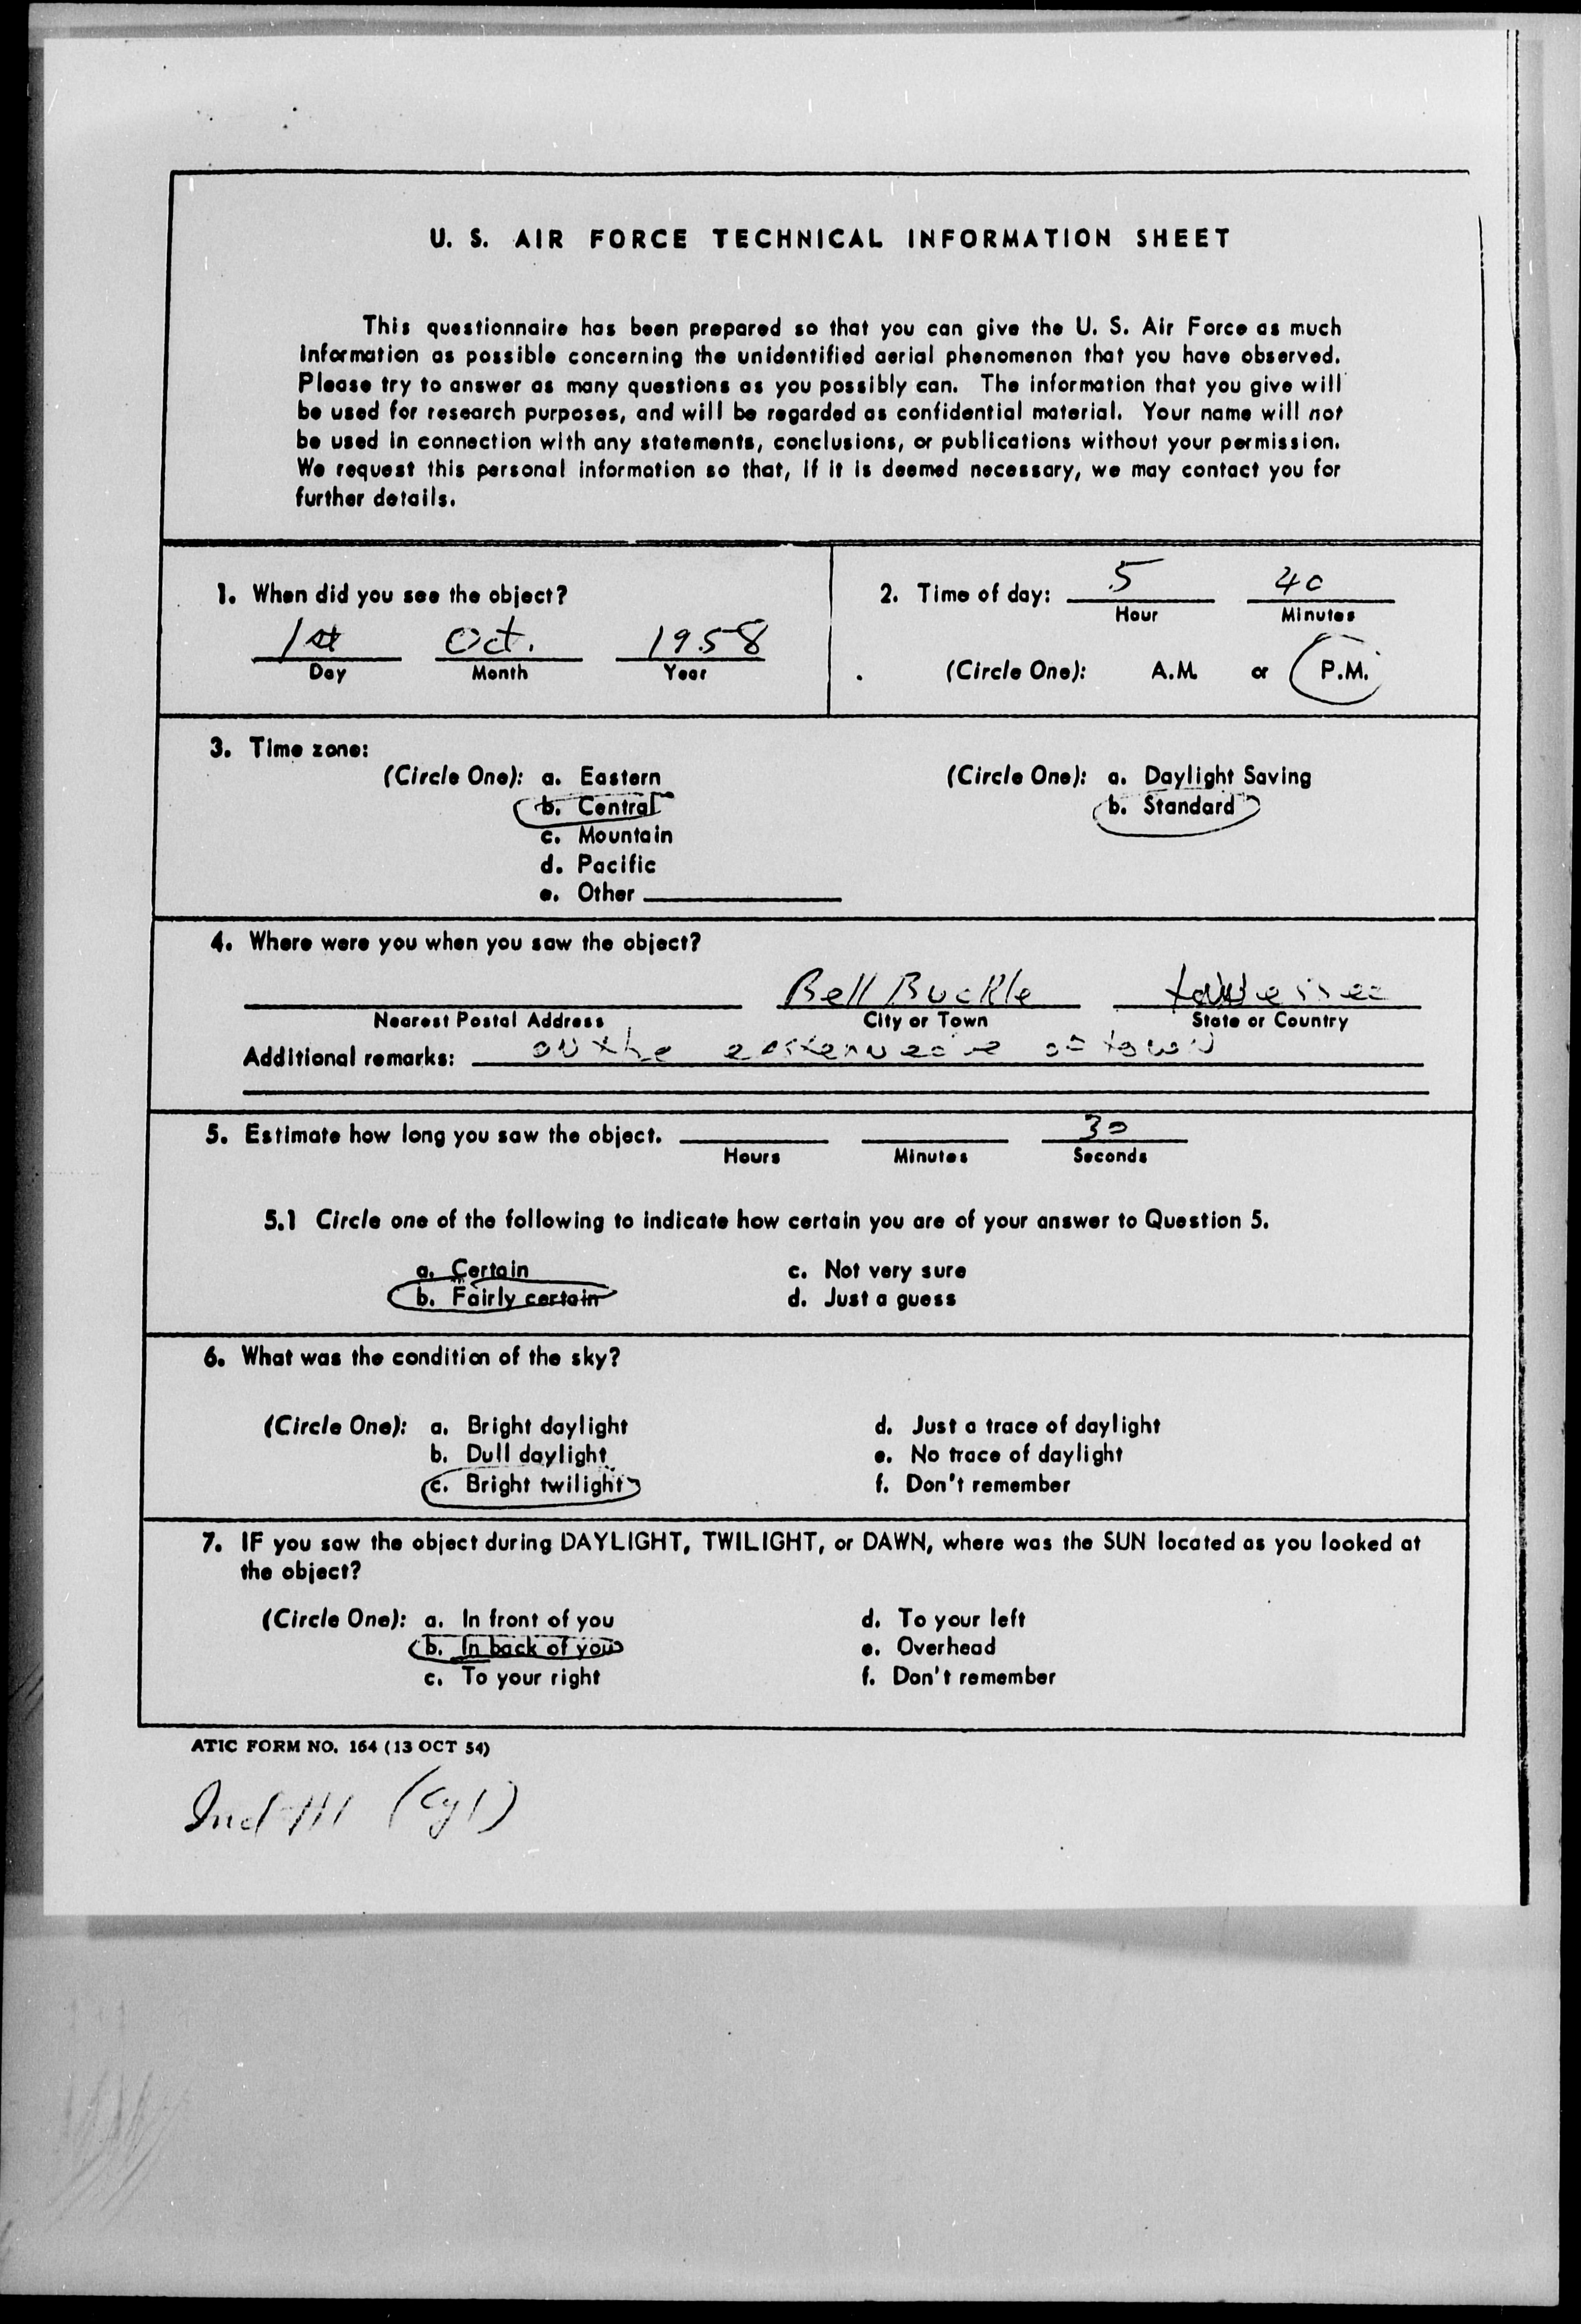 U. S. AIR FORCE TECHNICAL INFORMATION SHEET
This questionnaire has been prepared so that you can give the U. S. Air Force as much
information as possible concerning the unidentified aerial phenomenon that you have observed.
Please try to answer as many questions as you possibly can. The information that you give will
be used for research purposes, and will be regarded as confidential material. Your name will not
be used in connection with any statements, conclusions, or publications without your permission.
We request this personal information so that, if it is deemed necessary, we may contact you for
further details.
1. When did you see the object?
1st Oct. 1958
Day Month Year
2. Time of day: 5 40
Hour Minutes
(Circle One): A.M. or P.M.
3. Time zone:
(Circle One): a. Eastern
b. Central
c. Mountain
d. Pacific
e. Other
(Circle One): a. Daylight Saving
b. Standard
4. Where were you when you saw the object?
Bell Buckle tennessee
Nearest Postal Address City or Town State or Country
Additional remarks: on the eastern edge of town
5. Estimate how long you saw the object. 30
Hours Minutes Seconds
5.1 Circle one of the following to indicate how certain you are of your answer to Question 5.
a. Certain c. Not very sure
b. Fairly certain d. Just a guess
6. What was the condition of the sky?
(Circle One): a. Bright daylight d. Just a trace of daylight
b. Dull daylight e. No trace of daylight
c. Bright twilight f. Don't remember
7. IF you saw the object during DAYLIGHT, TWILIGHT, or DAWN, where was the SUN located as you looked at
the object?
(Circle One): a. In front of you d. To your left
b. In back of you e. Overhead
c. To your right f. Don't remember
ATIC FORM NO. 164 (13 OCT 54)
(Cy1)